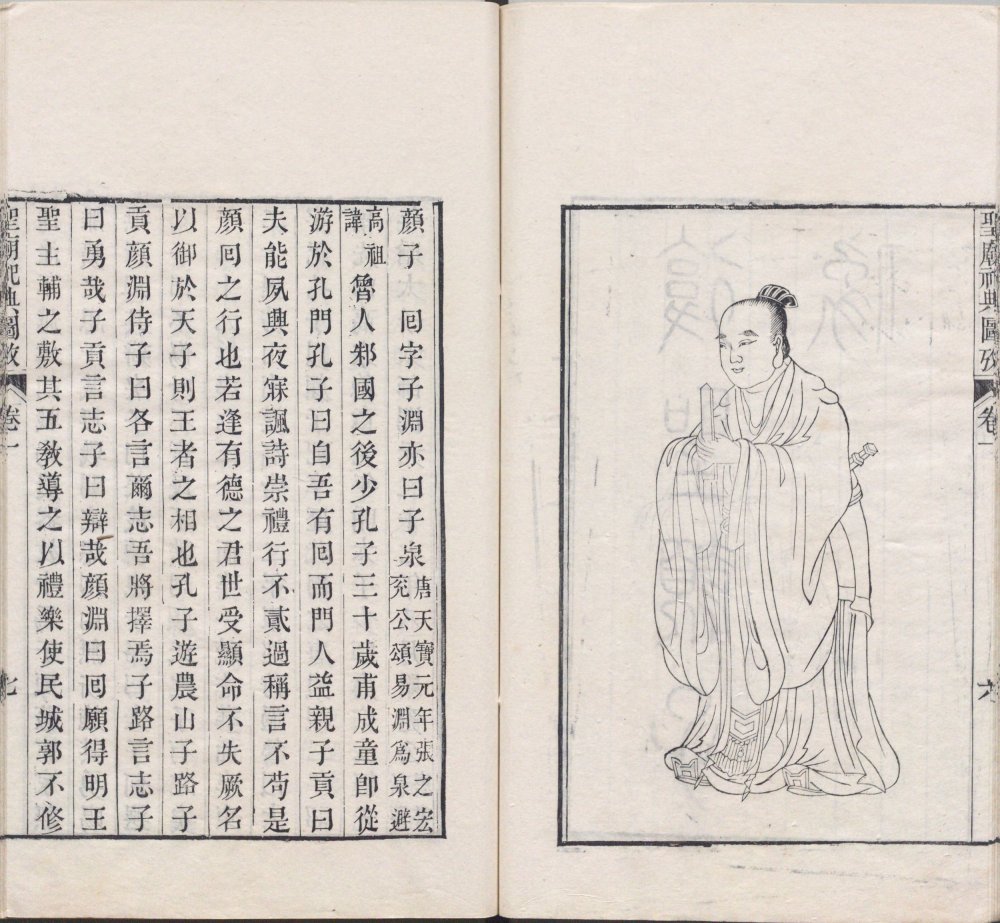 聖廟祀典圖攷 卷一 六
顏子 囘字子淵亦曰子泉唐天寶元年張之宏兖公頌易淵爲泉避
高祖諱 魯人邾國之後少孔子三十歲甫成童卽從
游於孔門孔子曰自吾有囘而門人益親子貢曰
夫能夙興夜寐諷詩崇禮行不貳過稱言不苟是
顏囘之行也若逢有德之君世受顯命不失厥名
以御於天子則王者之相也孔子遊農山子路子
貢顏淵侍子曰各言爾志吾將擇焉子路言志子
曰勇哉子貢言志子曰辯哉顏淵曰囘願得明王
聖主輔之敷其五敎導之以禮樂使民城郭不修
聖廟祀典圖攷 卷一 七